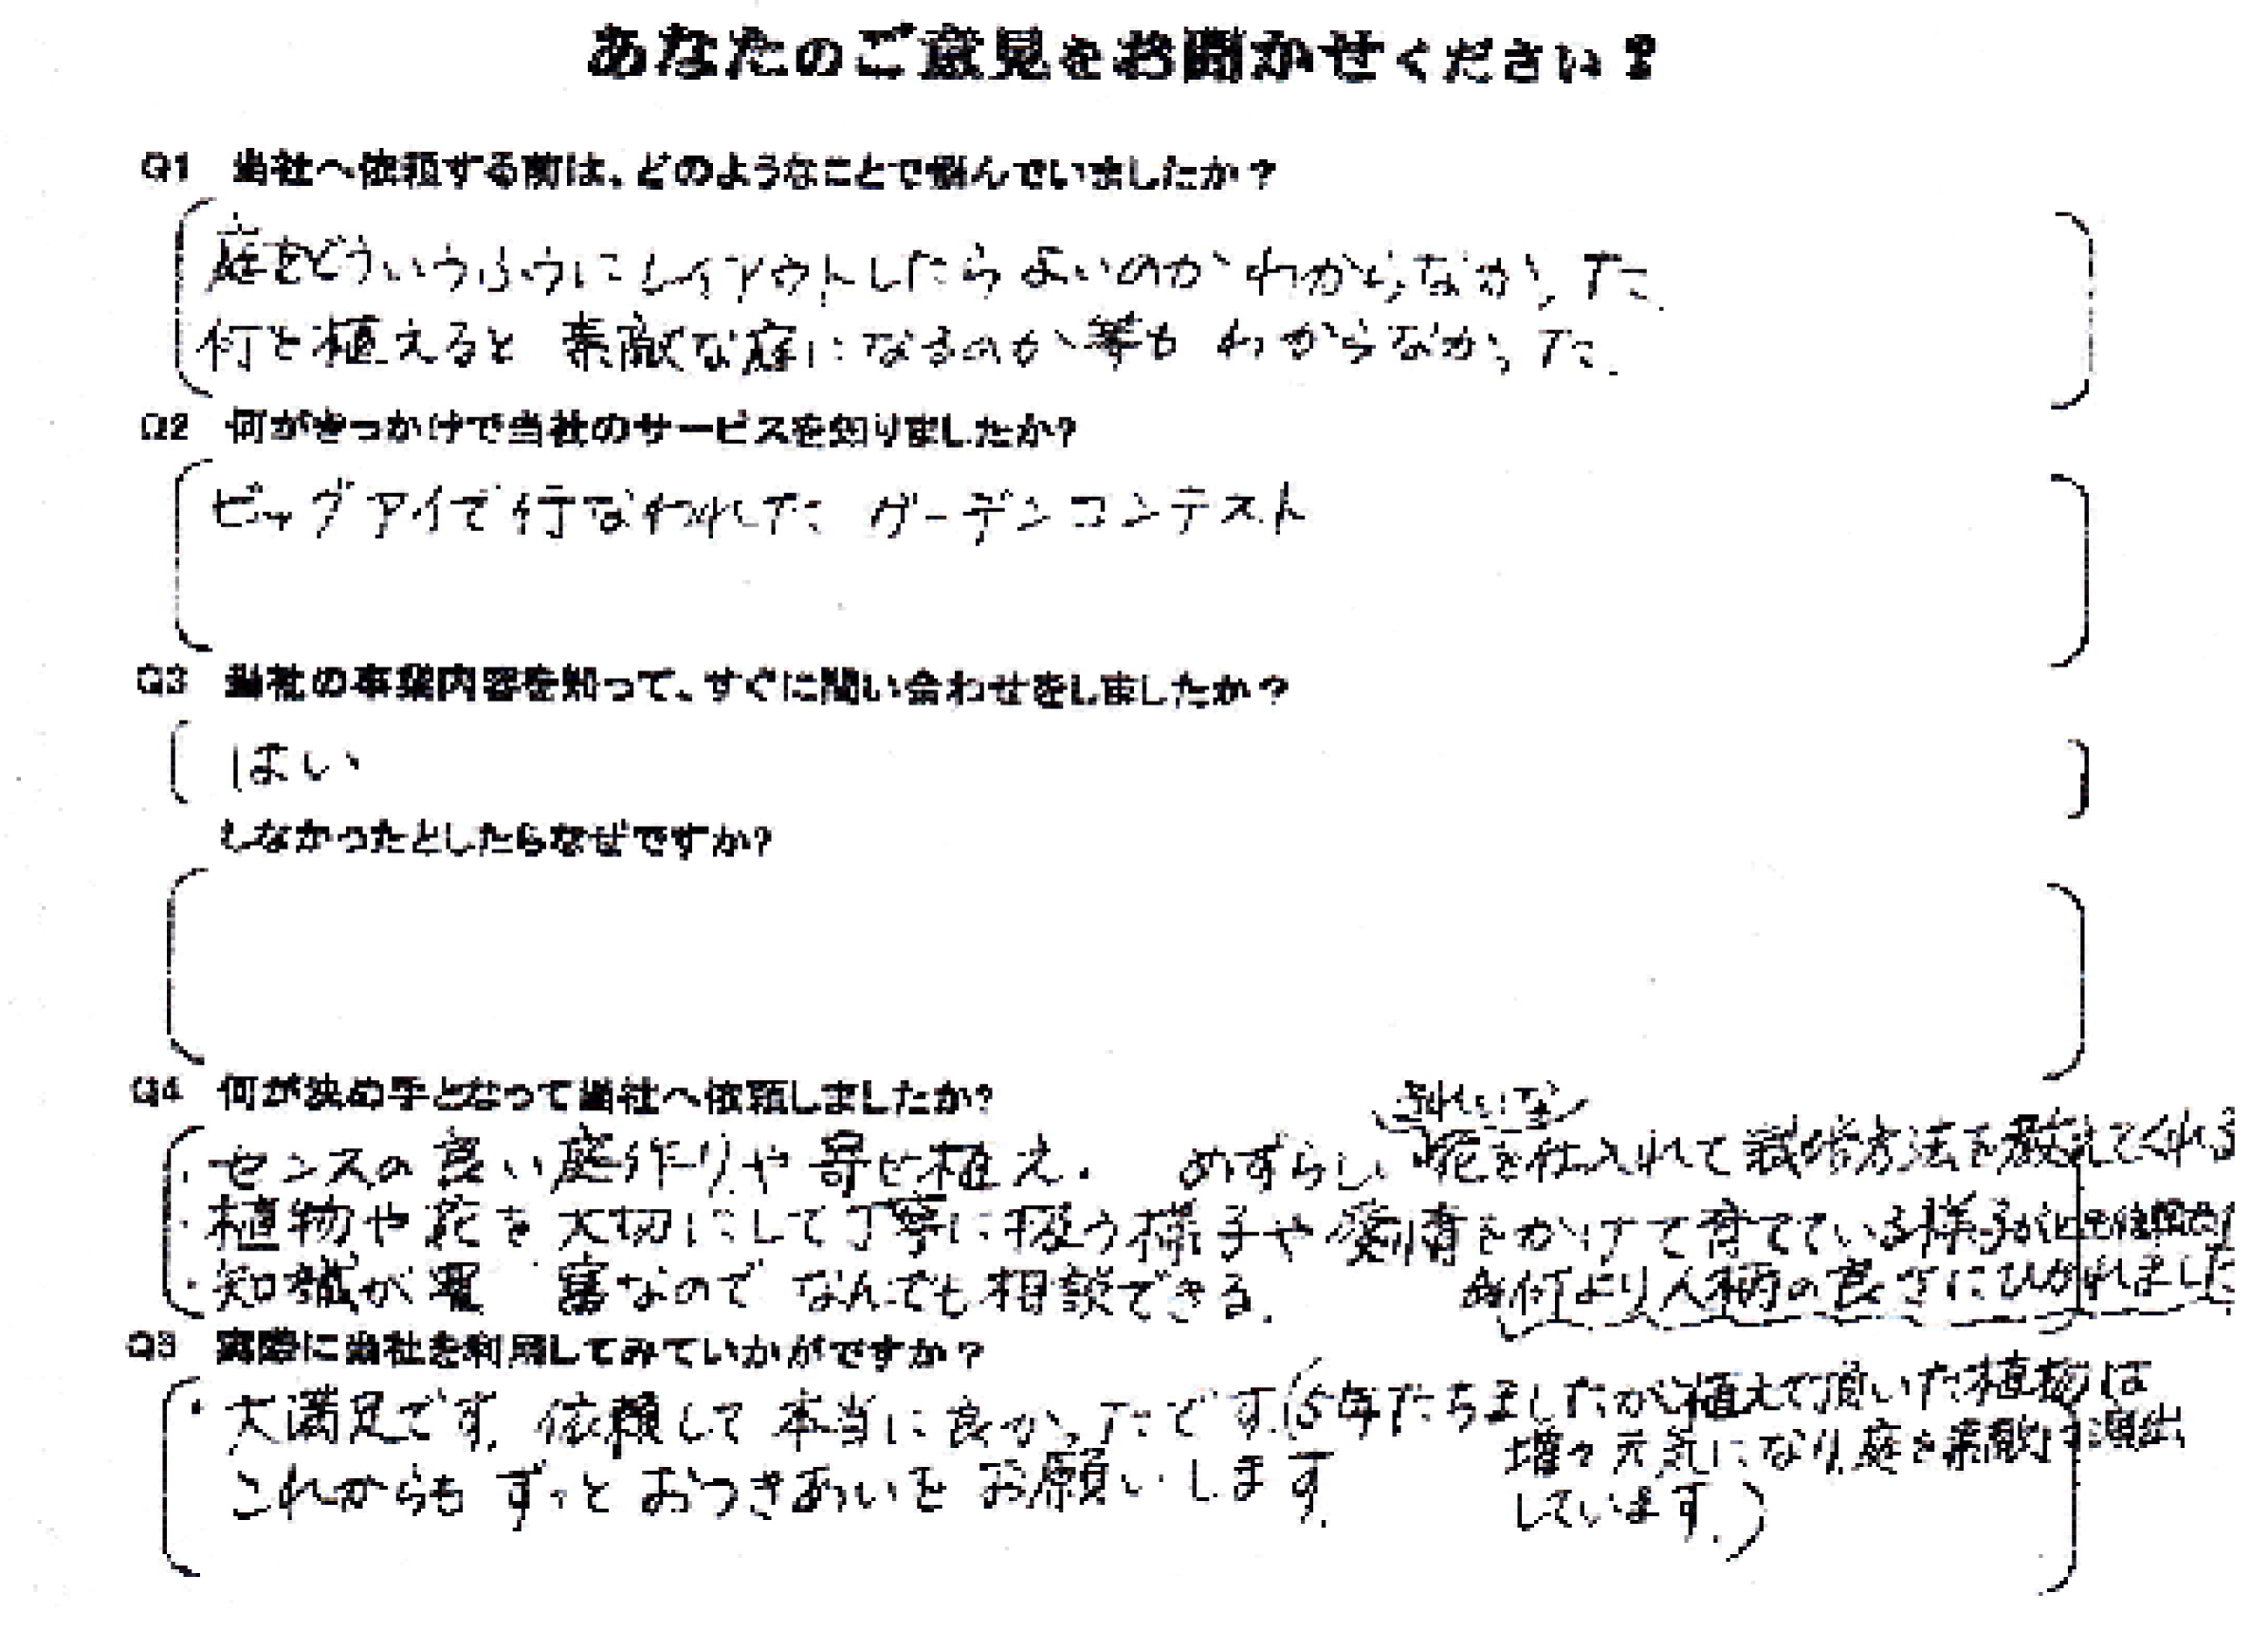 あなたのご意見をお聞かせください?
Q1 当社へ依頼する前は、どのようなことで悩んでいましたか?
庭をどういうふうにレイアウトしたらよいのかわからなかった.
何を植えると素敵な庭になるのか等もわからなかった.
Q2 何がきっかけで当社のサービスを知りましたか?
ビッグアイで行なわれた ガーデンコンテスト
Q3 当社の事業内容を知って、すぐに問い合わせをしましたか?
はい
しなかったとしたらなぜですか?
Q4 何が決め手となって当社へ依頼しましたか?
きれいな
・センスの良い庭作りや寄せ植え. めずらしい花を仕入れて栽培方法を教えてくれる
・植物や花を大切にして丁寧に扱う様子や愛情をかけて育てている様子が
・知識が豊富なのでなんでも相談できる. 何より人柄の良さにひかれました
Q5 実際に当社を利用してみていかがですか?
・大満足です.依頼して本当に良かったです.(5年たちましたが植えて頂いた植物は
増々元気になり庭を素敵に演出
これからもずっとおつきあいをお願いします.
しています.)